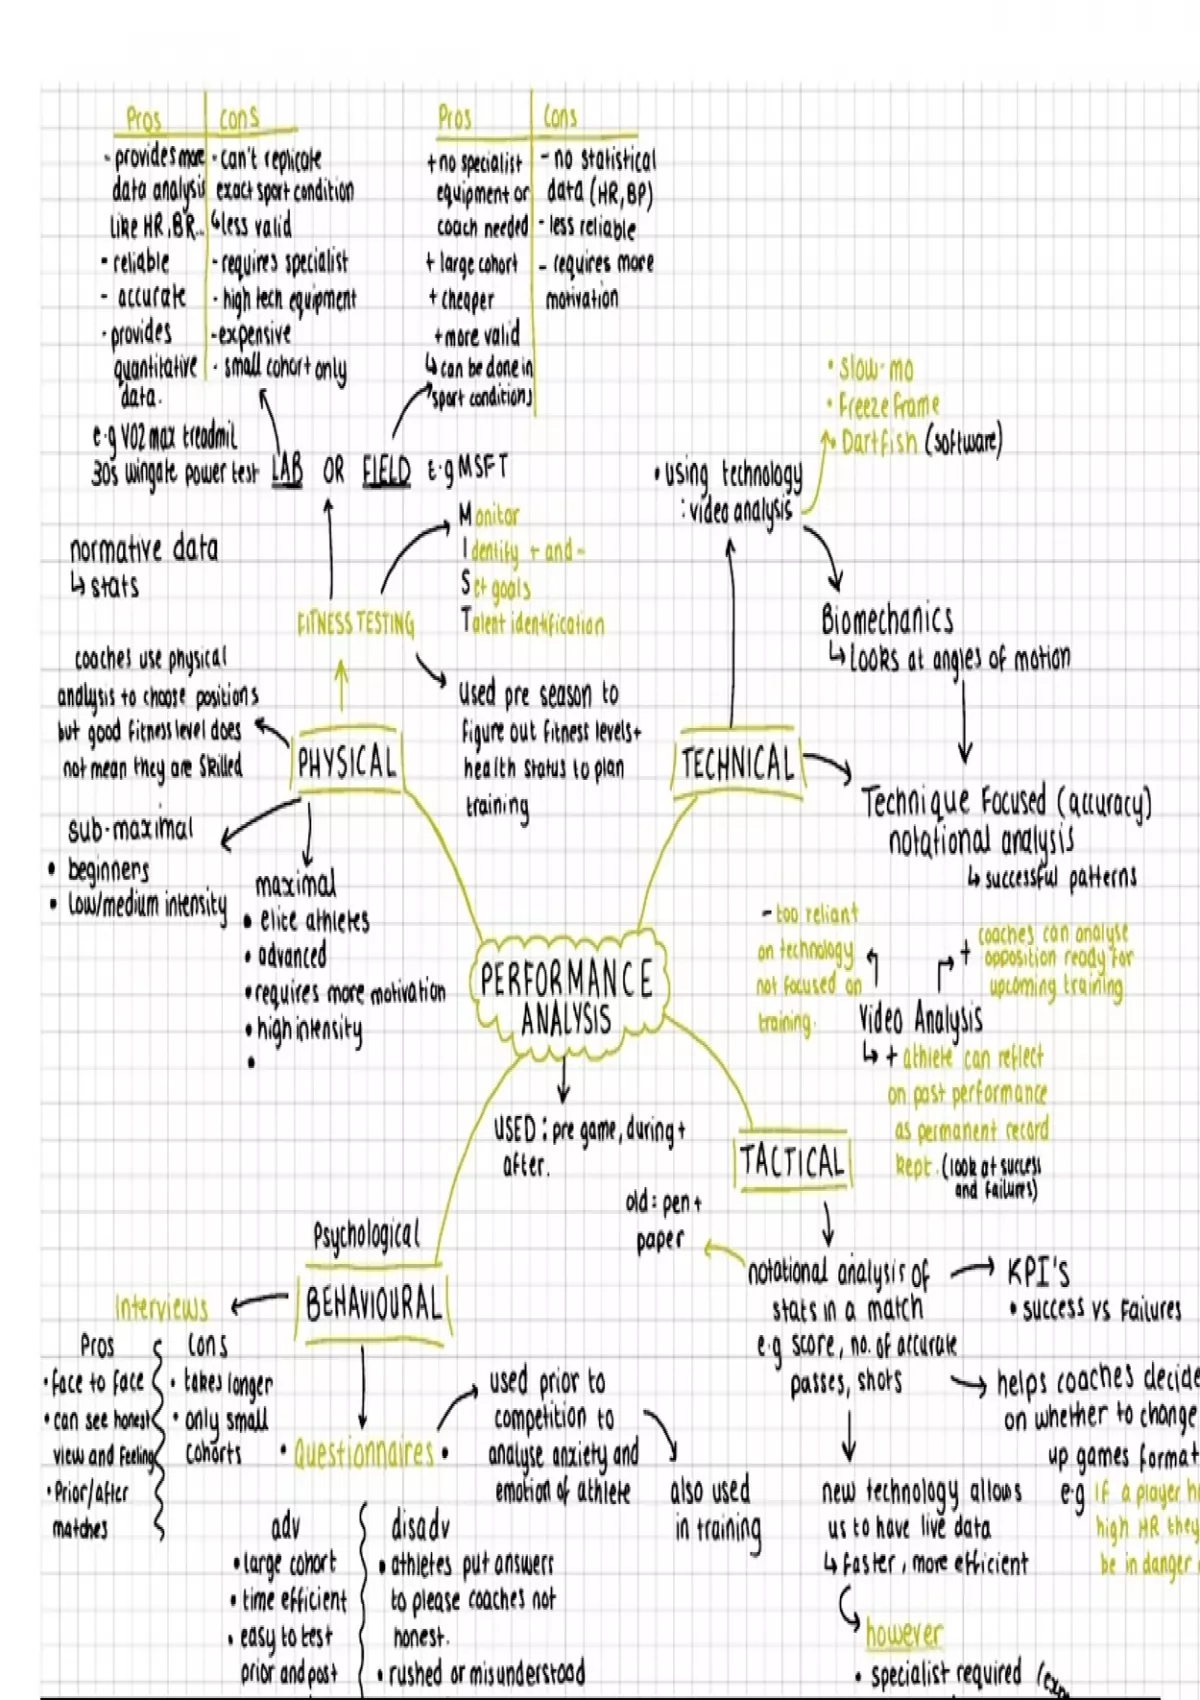 Pros
- provides more
data analysis
like HR, BR..
- reliable
- accurate
- provides
quantitative
data.
cons
- can't replicate
exact sport condition
↳ less valid
- requires specialist
- high tech equipment
- expensive
- small cohort only
Pros
+ no specialist
equipment or
coach needed
+ large cohort
+ cheaper
+ more valid
↳ can be done in
sport conditions
Cons
- no statistical
data (HR, BP)
- less reliable
- requires more
motivation
e.g VO2 max treadmil
30s wingate power test LAB OR FIELD E.g MSFT
• slow-mo
• Freeze frame
• Dartfish (software)
• using technology
: video analysis
Monitor
Identify + and -
Set goals
Talent identification
normative data
↳ stats
FITNESS TESTING
Biomechanics
↳ looks at angles of motion
coaches use physical
analysis to choose positions
but good fitness level does
not mean they are skilled
used pre season to
figure out fitness levels +
health status to plan
training
PHYSICAL
TECHNICAL
Technique Focused (accuracy)
notational analysis
↳ successful patterns
sub-maximal
• beginners
• low/medium intensity
maximal
• elite athletes
• advanced
• requires more motivation
• high intensity
•
PERFORMANCE
ANALYSIS
- too reliant
on technology
not focused on
training.
+ coaches can analyse
opposition ready for
upcoming training
Video Analysis
↳ + athlete can reflect
on past performance
as permanent record
kept. (look at success
and failures)
USED : pre game, during +
after.
TACTICAL
old : pen +
paper
notational analysis of
stats in a match
e.g score, no. of accurate
passes, shots
KPI's
• success vs failures
helps coaches decide
on whether to change
up games format
e.g If a player
high HR they
be in danger
new technology allows
us to have live data
↳ faster, more efficient
however
• specialist required
Psychological
BEHAVIOURAL
Interviews
Pros
• face to face
• can see honest
view and feeling
• Prior/after
matches
Cons
• takes longer
• only small
cohorts
• Questionnaires •
used prior to
competition to
analyse anxiety and
emotion of athlete
also used
in training
adv
• large cohort
• time efficient
• easy to test
prior and post
disadv
• athletes put answers
to please coaches not
honest.
• rushed or misunderstood